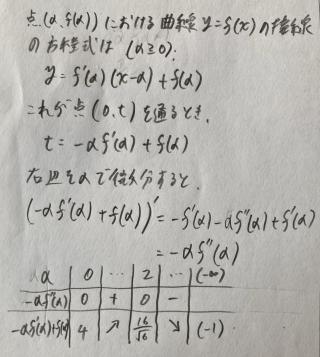 点(α, f(α)) における曲線 y=f(x) の接線
の方程式は (α≧0)、
y = f'(α)(x-α) + f(α)
これが点(0, t) を通るとき、
t = -αf'(α) + f(α)
右辺をαで微分すると、
(-αf'(α) + f(α))' = -f'(α) - αf''(α) + f'(α)
= -αf''(α)
α | 0 | … | 2 | … | (-∞)
-αf''(α) | 0 | + | 0 | - |
-αf'(α)+f(α) | 4 | ↗ | 16/√6 | ↘ | (-1)